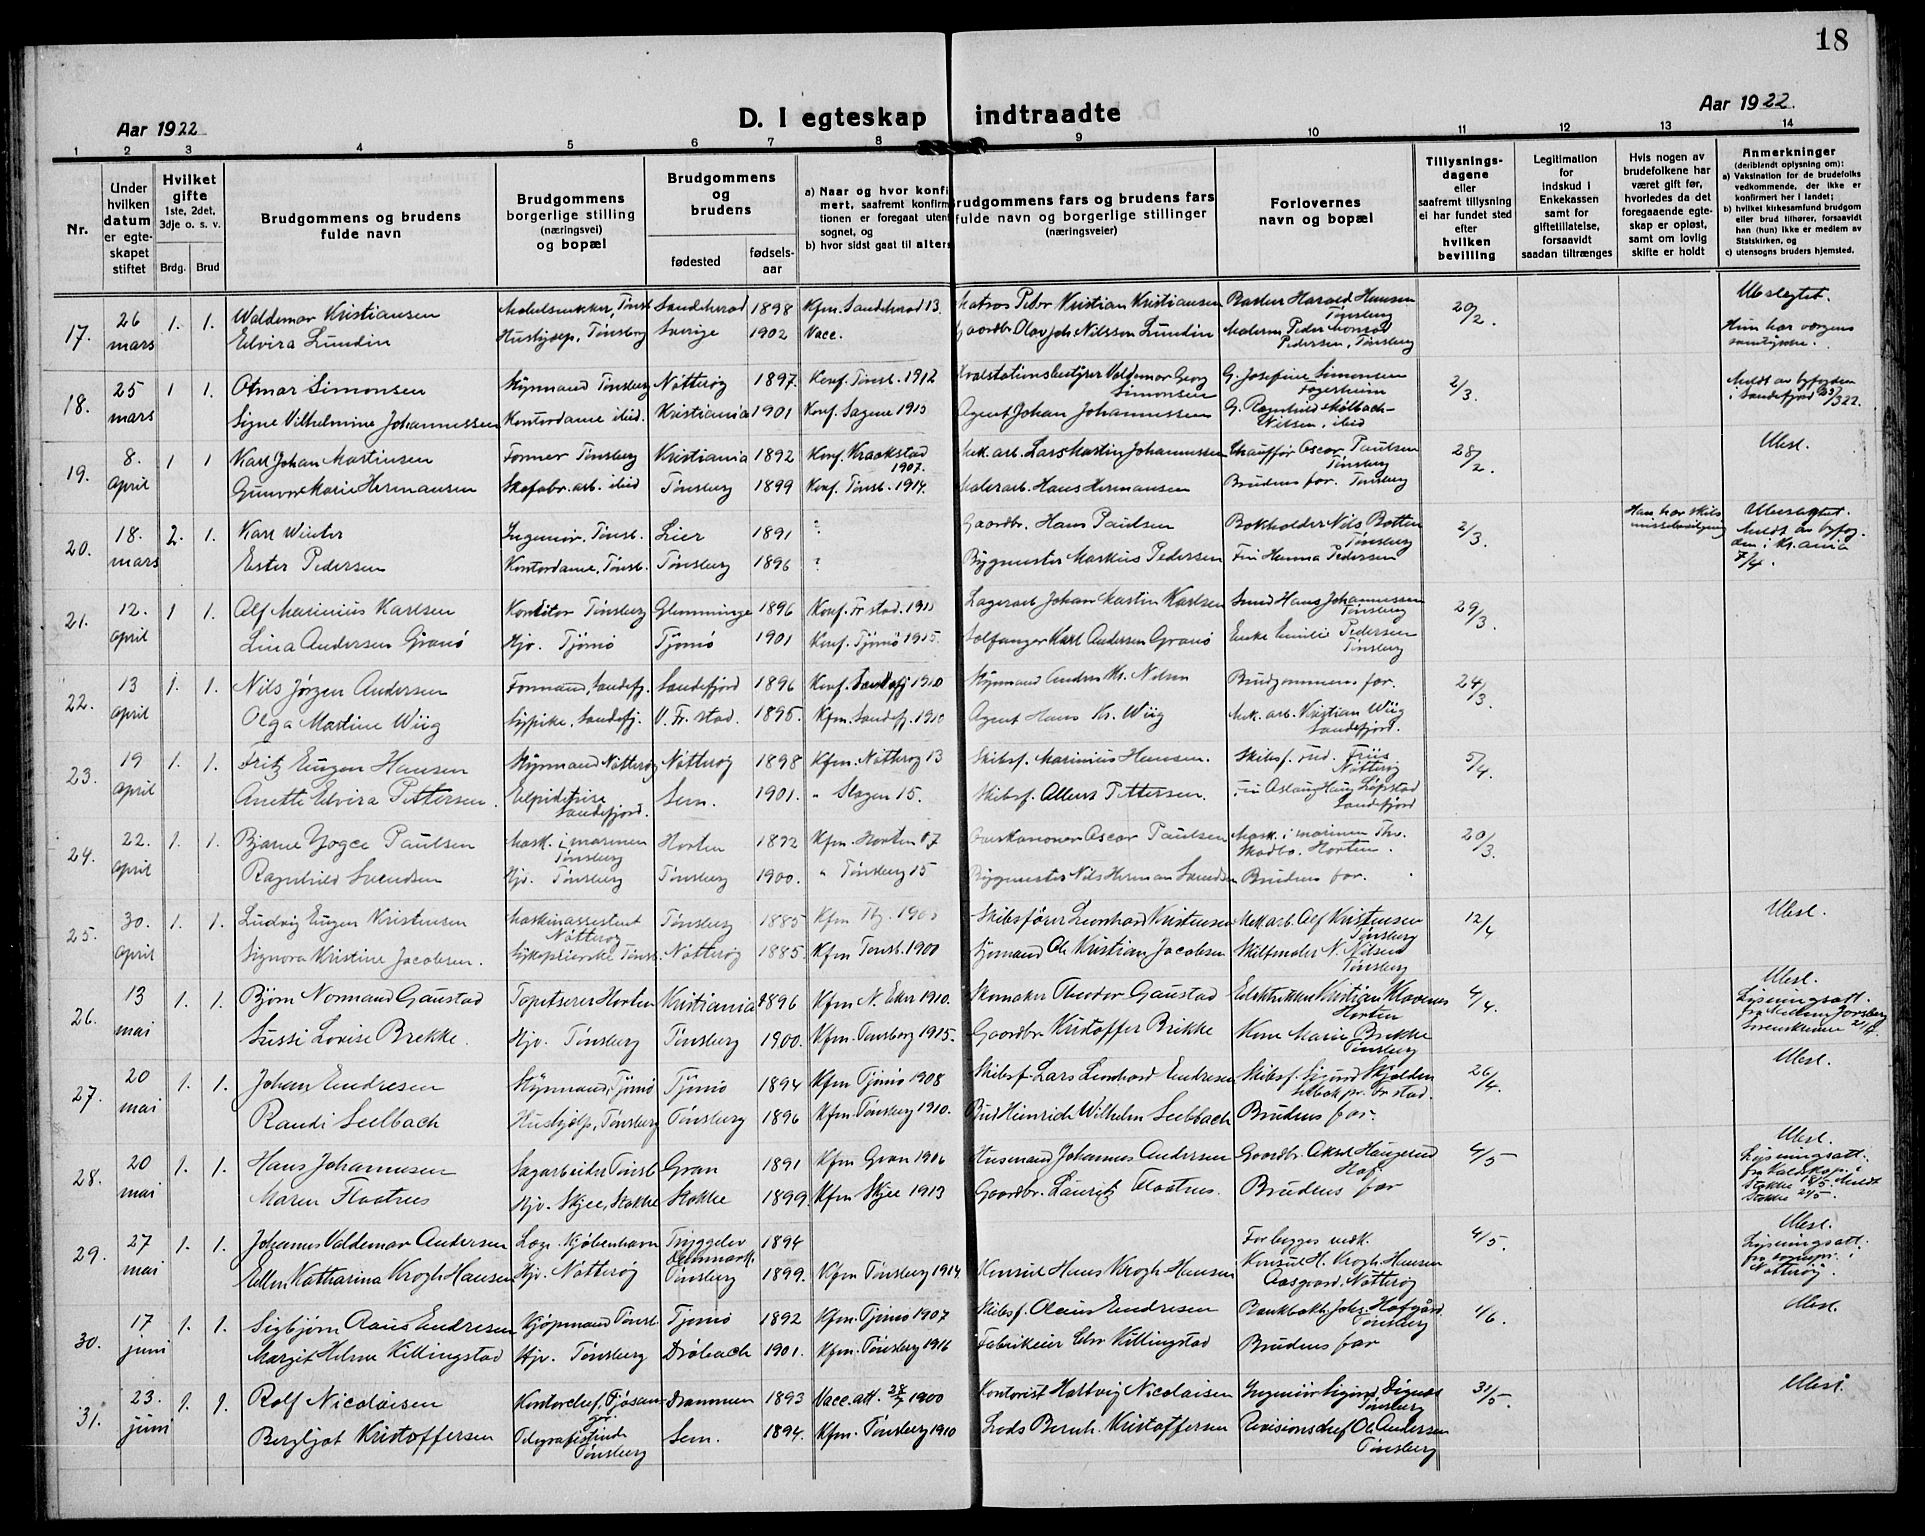 18
Aar 1922
D. I egteskap indtraadte
Aar 1922.
1 2 3 4 5 6 7 8 9 10 11 12 13 14
Nr.
Under hvilken datum er egteskapet stiftet
Hvilket gifte
1ste, 2det, 3dje o. s. v.
Brdg. Brud
Brudgommens og brudens fulde navn
Brudgommens borgerlige stilling (næringsvei) og bopæl
Brudgommens og brudens
fødested
fødselsaar
a) Naar og hvor konfi
mert, saafremt konfirm
tionen er foregaat uten
sognet, og
b) hvor sidst gaat til alters
Brudgommens fars og brudens fars
fulde navn og borgerlige stillinger
(næringsveier)
Forlovernes navn og bopæl
Tillysningsdagene eller saafremt tillysning ei har fundet sted efter hvilken bevilling
Legitimation for indskud i Enkekassen samt for giftetillatelse, forsaavidt saadan tiltrænges
Hvis nogen av brudefolkene har været gift før, hvorledes da det foregaaende egteskap er opløst, samt om lovlig skifte er holdt
Anmerkninger
(deriblandt oplysning om):
a) Vaksination for de brudefolks vedkommende, der ikke er konfirmert her i landet;
b) hvilket kirkesamfund brudgom eller brud tilhører, forsaavidt han (hun) ikke er medlem av Statskirken, og
c) utensogns bruders hjemsted.
17. 26 mars 1. 1. Waldemar Kristiansen Sandeherad 1898 Kfm. Sandeherad 13. Matros Peder Kristian Kristiansen Harald Hansen Tønsberg 20/2. Ubeslegtet.
Elvira Lundin Hushjælp, Tønsberg Sverige 1902 Vacc. Gaardbr. Olav Joh. Nilsson Lundin Peder Monrad Pedersen, Tønsberg Hun har værgens samtykke.
18. 25 mars 1 1. Otmar Simonsen Styrmand Tønsberg Nøtterøy 1897. Konf. Tønsb. 1912 Hvalstationsbestyrer Valdemar Georg Simonsen G. Josefine Simonsen Fagerheim 2/3. Meldt av byfogden i Sandefjord 25/3 22.
Signe Vilhelmine Johannessen Kontordame ibid. Kristiania 1901 Konf. Sagene 1915 Agent Johan Johannessen G. Ragnhild Nilsen, ibid
19. 8. april 1 1 Karl Johan Martinsen Former Tønsberg Kristiania 1892 Konf. Kraakstad 1907. Mek. arb. Lars Martin Johannessen Chauffør Oscar Paulsen Tønsberg 28/2. Ubesl.
Gunvor Marie Hermansen Skofabr. arb. ibid Tønsberg 1899 Konf. Tønsb. 1914. Malerarb. Hans Hermansen Brudens far. Tønsberg
20. 18. mars 2. 1. Karl Winter Ingeniør, Tønsb. Lier 1891 ? Gaardbr. Hans Paulsen Bokholder Nils Botten Tønsberg 2/3. Han har skilsmissebevilgning Ubeslegtet. Meldt av byfogden i Kr.ania 7/4.
Ester Pedersen Kontordame, Tønsb. Tønsberg 1896 ? Bygmester Markus Pedersen Frk Hanna Pedersen
21. 12. april 1 1. Alf Marinius Karlsen Konditor Tønsberg Glemminge 1896 Konf. Fr.stad. 1911 Lagerarb Johan Martin Karlsen Smed Hans Johannessen Tønsberg 29/3.
Lina Andersen Granø Hjv. Tjømø Tjømø 1901 Konf. Tjømø 1915. Selfanger Karl Andersen Granø Enke Emilie Pedersen Tønsberg
22. 13 april 1. 1. Nils Jørgen Andersen Formand, Sandefj. Sandefjord 1896 Konf. Sandefj 1910 Styrmand Anders Kr. Nilsen Brudgommens far. 24/3.
Olga Martine Wiig Sypike, Sandefj. V. Fr. stad. 1895. Kfm. Sandefj. 1910 Agent Hans Kr. Wiig Mek. arb. Kristian Wiig Sandefjord.
23. 19 april 1. 1. Fritz Eugen Hansen Styrmand Nøtterøy Nøtterøy 1898 Kfm. Nøtterøy 13 Skibsf. Marinius Hansen. Skibsf. Friis Nøtterøy 5/4.
Anette Elvira Pettersen. Sandefjord. Sem. 1901. " Slagen 15. Skibsf. Albert Pettersen. Frk Aslaug Sandefjord
24. 22. april 1. 1. Bjarne Yngve Paulsen Mask. i marinen Tønsberg Horten 1892 Kfm. Horten 07 Overkanoner Oscar Paulsen Mask. i marinen Ths. Skadbo. Horten. 20/3.
Ragnhild Svendsen Hjv. Tønsberg Tønsberg 1900. " Tønsberg 15 Bygmester Nils Herman Svendsen Brudens far.
25. 30. april 1. 1. Ludvig Eugen Kristensen Maskinassistent Nøtterøy Tønsberg 1885 Kfm Tbg. 1900 Skibsfører Leonhard Kristensen Mek. arb. Alf Kristensen Tønsberg 12/4 Ubesl.
Signora Kristine Jacobsen. Tønsb. Nøtterøy 1885. Kfm Tønsb. 1900 Sjømand Ole Kristian Jacobsen Skiltmaler N. Nilsen Tønsberg
26. 13 mai 1. 1. Bjørn Normand Gaustad Tapetserer Horten Kristiania 1896 Kfm. N. Eker 1910. Skomaker Theodor Gaustad Elektriker Kristian Klavenes Horten 4/4. Ubesl. Lysningsatt. fra
Sussi Lovise Brekke. Hjv. Tønsberg Tønsberg 1900. Kfm. Tønsberg 1915. Gaardbr. Kristoffer Brekke Kone Marie Brekke Tønsberg
27. 20 mai 1. 1. Johan Endresen Styrmand, Tjømø Tjømø 1894 Kfm Tjømø 1908 Skibsf. Lars Leonhard Endresen Skibsf. Sigurd Skjelden Selbak pr. Fr stad. 26/4. Ubesl.
Randi Seelbach Hushjælp, Tønsberg Tønsberg 1896 Kfm. Tønsberg 1910. Bud Heinrich Wilhelm Seelbach Brudens far.
28. 20 mai 1. 1. Hans Johannesen Sagarbeider Tønsb Gran 1891 Kfm Gran 1906 Husmand Johannes Andersen Gaardbr. Aksel Haugerud Hof 4/5 Ubesl. Lysningsatt. fra Stokke 18/5. Meldt Stokke 24/5.
Maren Flaatnes Hjv. Skjee, Stokke Stokke 1899. Kfm. Skjee 1913 Gaardbr. Lauritz Flaatnes. Brudens far
29. 27 mai 1. 1. Johannes Valdemar Andersen Læge Kjøbenhavn Tryggelev Danmark 1894 Forbigges vedk. 4/5. Ubesl. Lysningsatt. fra sognepr. i Nøtterøy.
Ellen Katharina Krogh Hansen Hjv. Nøtterøy Tønsberg 1899. Kfm Tønsberg 1914. Konsul Hans Krogh Hansen Konsul H. Krogh Hansen Aasgaard. Nøtterøy
30. 17 juni 1. 1. Sigbjørn Olaus Endresen Kjøpmand Tønsb. Tjømø 1892 Kfm. Tjømø 1907 Skibsf. Olaus Endresen Bankbokh. Johs. Hofgård Tønsberg 1/6. Ubesl.
Margit Helene Killingstad Hjv. Tønsberg Drøbach 1901. Kfm. Tønsberg 1916 Fabrikeier Chr Killingstad Brudens far
31. 23. juni 1. 1. Rolf Nicolaisen Kontorchef, Drammen 1893 Vacc. att. 28/7 1900 Kontorist Halfvig Nicolaisen Ingeniør Sigurd Tønsberg 31/5. Ubesl.
Bergljot Kristoffersen Telegrafistinde Tønsberg Sem. 1894. Kfm. Tønsberg 1910 Lods Bernh. Kristoffersen Revisionschef Ole Andersen Tønsberg